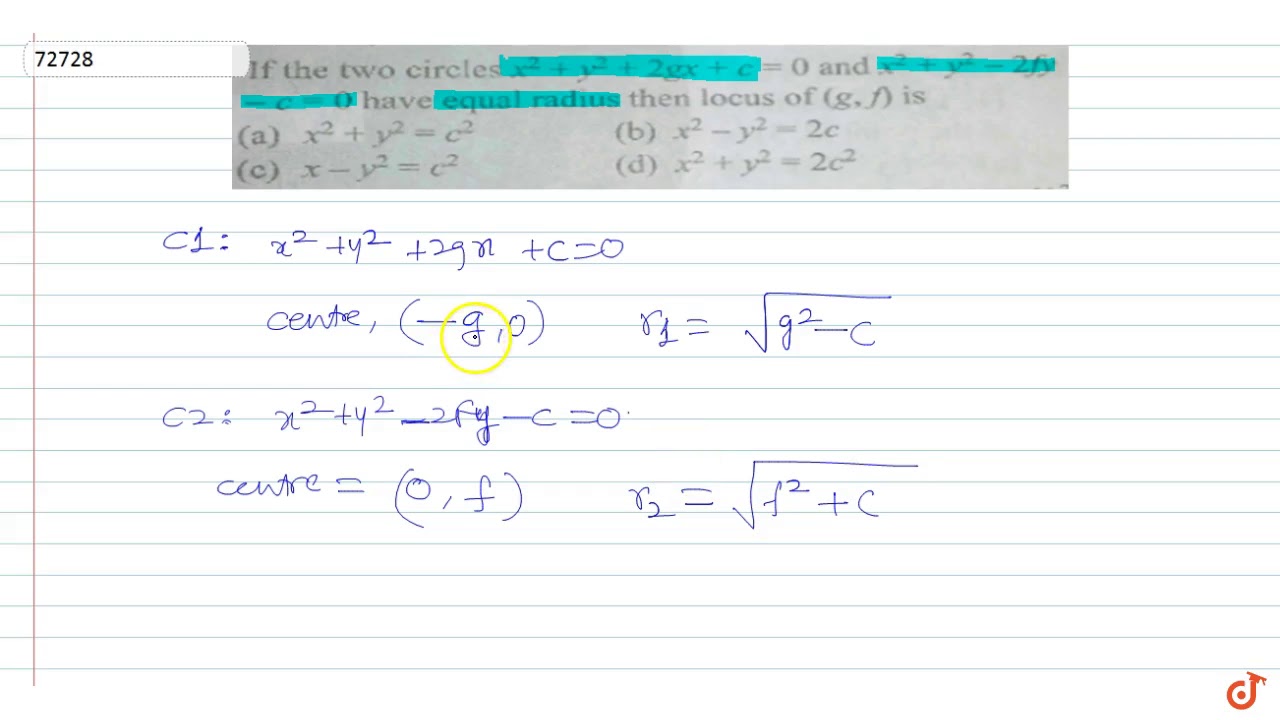 72728
If the two circles x² + y² + 2gx + c = 0 and x² + y² − 2fy
− c = 0 have equal radius then locus of (g, f) is
(a) x² + y² = c² (b) x² − y² = 2c
(c) x − y² = c² (d) x² + y² = 2c²
C1: x² + y² + 2gx + c = 0
centre, (−g, 0) r₁ = √(g² − c)
C2: x² + y² − 2fy − c = 0
centre = (0, f) r₂ = √(f² + c)